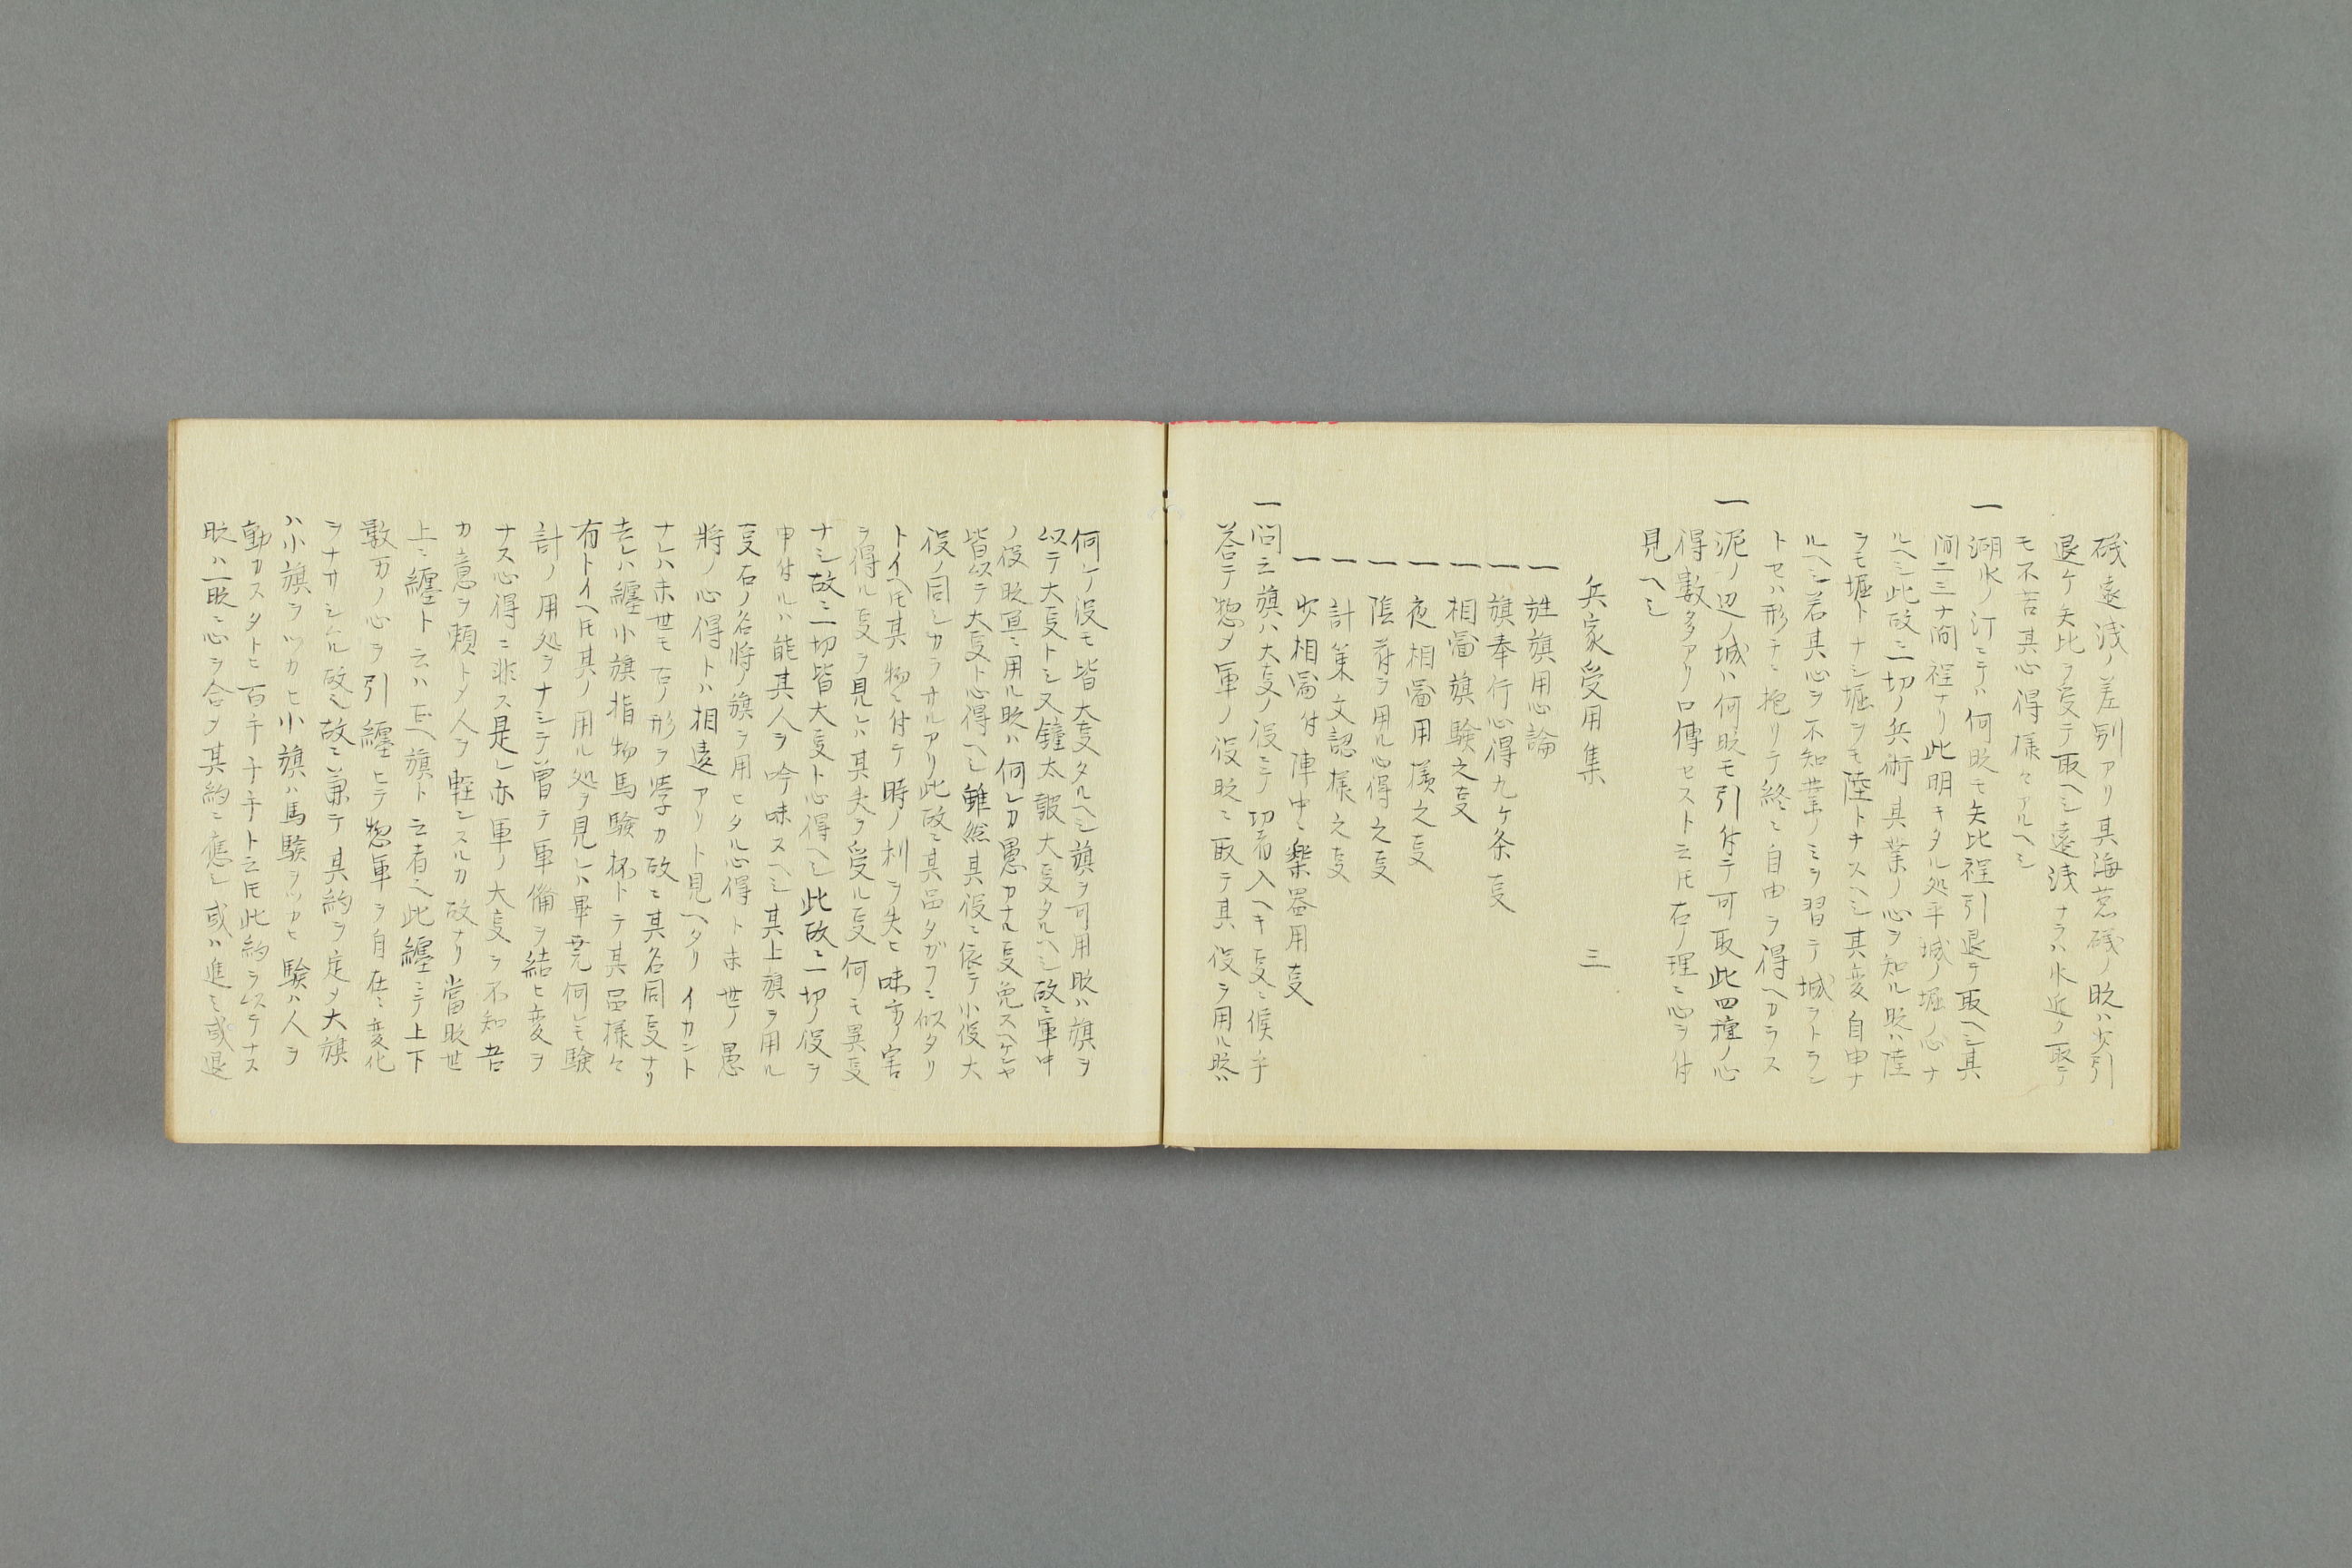 磯遠浅ノ差別アリ其海荒磯ノ時ハ少引
退ケ矢比ヲ受テ取ヘシ遠浅ナラハ水近ク取テ
モ不苦其心得様々アルヘシ
一湖水ノ汀ニテハ何時モ矢比程引退テ取ヘシ其
間二三十間程ナリ此明キタル処平城ノ堀ノ心ナ
ルヘシ此故ニ一切ノ兵術其業ノ心ヲ知ル時ハ陸
ヲモ堀トナシ堀ヲモ陸トナスヘシ其変自由ナ
ルヘシ若其心ヲ不知業ノミヲ習テ城ヲトラン
トセハ形チニ抱リテ終ニ自由ヲ得ヘカラス
一泥ノ辺ノ城ハ何時モ引付テ可取此四種ノ心
得數多アリ口傳セスト云ヒ右ノ理ニ心ヲ付
見ヘシ
兵家受用集 三
一旌旗用心論
一旗奉行心得九ケ条叓
一相啚旗験之叓
一夜相啚用様之叓
一陰符ヲ用ル心得之叓
一計策文認様之叓
一少相啚付陣中ニ楽器用叓
一問云旗ハ大叓ノ役ニテ切者入ヘキ叓ニ候乎
答テ惣〆軍ノ役時ニ取テ其役ヲ用ル時ハ
何レノ役モ皆大叓タルヘシ旗ヲ可用時ハ旗ヲ
以テ大叓トシ又鐘太皷大叓タルヘシ故ニ軍中
ノ役時宜ニ用ル時ハ何レカ愚カナル叓免スヘケンヤ
皆以テ大叓ト心得ヘシ雖然其役ニ依テ小役大
役ノ同シカラサルアリ此故ニ其品タガフニ似タリ
トイヘ𪜈其物ニ付テ時ノ利ヲ失ヒ味方ノ害
ヲ得ル叓ヲ見レハ其失ヲ受ル叓何モ異叓
ナシ故ニ一切皆大叓ト心得ヘシ此故ニ一切ノ役ヲ
申付ルハ能其人ヲ吟味スヘシ其上旗ヲ用ル
叓古ノ名將ノ旗ヲ用ヒタル心得ト末世ノ愚
將ノ心得トハ相違アリト見ヘタリイカント
ナレハ末世モ古ノ形ヲ学カ故ニ其名同叓ナリ
去レハ纏小旗指物馬験抔トテ其品様々
有トイヘ𪜈其ノ用ル処ヲ見レハ畢竟何レモ験
計ノ用処ヲナシテ曽テ軍備ヲ結ヒ変ヲ
ナス心得ニ非ス是レ亦軍ノ大叓ヲ不知吾
カ意ヲ頼ト〆人ヲ軽シスルカ故ナリ當時世
上ニ纏ト云ハ上ヘ旗ト云者ヘ此纏ニテ上下
數万ノ心ヲ引纏ヒテ惣軍ヲ自在ニ変化
ヲナサシムル故ヘ故ニ兼テ其約ヲ定メ大旗
ハ小旗ヲツカヒ小旗ハ馬験ヲツカヒ験ハ人ヲ
動カスタトヒ百千千千ト云𪜈此約ヲ以テナス
時ハ一時ニ心ヲ合〆其約ニ應シ或ハ進ミ或退